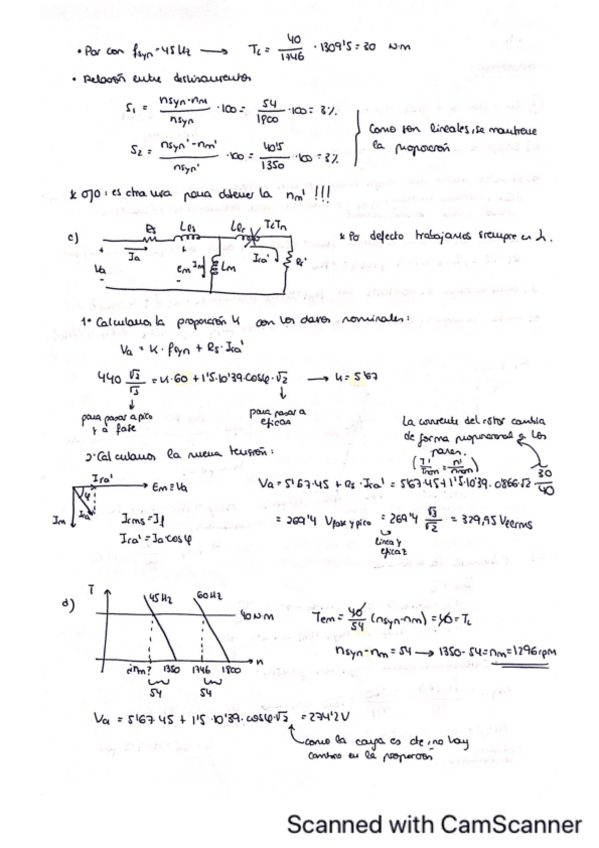 • Par con fsyn = 45Hz → TL = 40/1746 · 1309'5 = 30 N·m
• Relación entre deslizamientos
S1 = (nsyn-nm)/nsyn · 100 = 54/1800 · 100 = 3%
S2 = (nsyn'-nm')/nsyn' · 100 = 40'5/1350 · 100 = 3%
Como son lineales, se mantiene la proporción
* ojo: es otra vía para obtener la nm' !!!
c) Rs Lls Llr TcTn
Ia Ira' Va em Im Lm Rr'
* Por defecto trabajamos siempre en λ.
1º Calculamos la proporción K con los datos nominales:
Va = K · fsyn + Rs · Ira'
440 √2/√3 = K·60 + 1'5·10'39·cosφ·√2 → K = 5'67
para pasar a pico y a fase
para pasar a eficaz
La corriente del rotor cambia de forma proporcional a los pares.
(T'/Tnom = n'/nnom)
2º Calculamos la nueva tensión:
Va = 5'67·45 + Rs · Ira' = 5'67·45 + 1'5·10'39·0'866·√2 · 30/40
= 269'4 Vfase y pico = 269'4 √3/√2 = 329,95 Vrms
línea y eficaz
Ira' Em ≡ Va
φ
Im Ia
Irms = If
Ira' = Ia cosφ
d) T 45Hz 60Hz
40 N·m
¿nm? 1350 1746 1800 n
54 54
Tem = 40/54 (nsyn-nm) = 40 = TL
nsyn-nm = 54 → 1350-54 = nm = 1296 rpm
Va = 5'67·45 + 1'5·10'39·cosφ·√2 = 274'2V
como la carga es cte, no hay cambio en la proporción
Scanned with CamScanner